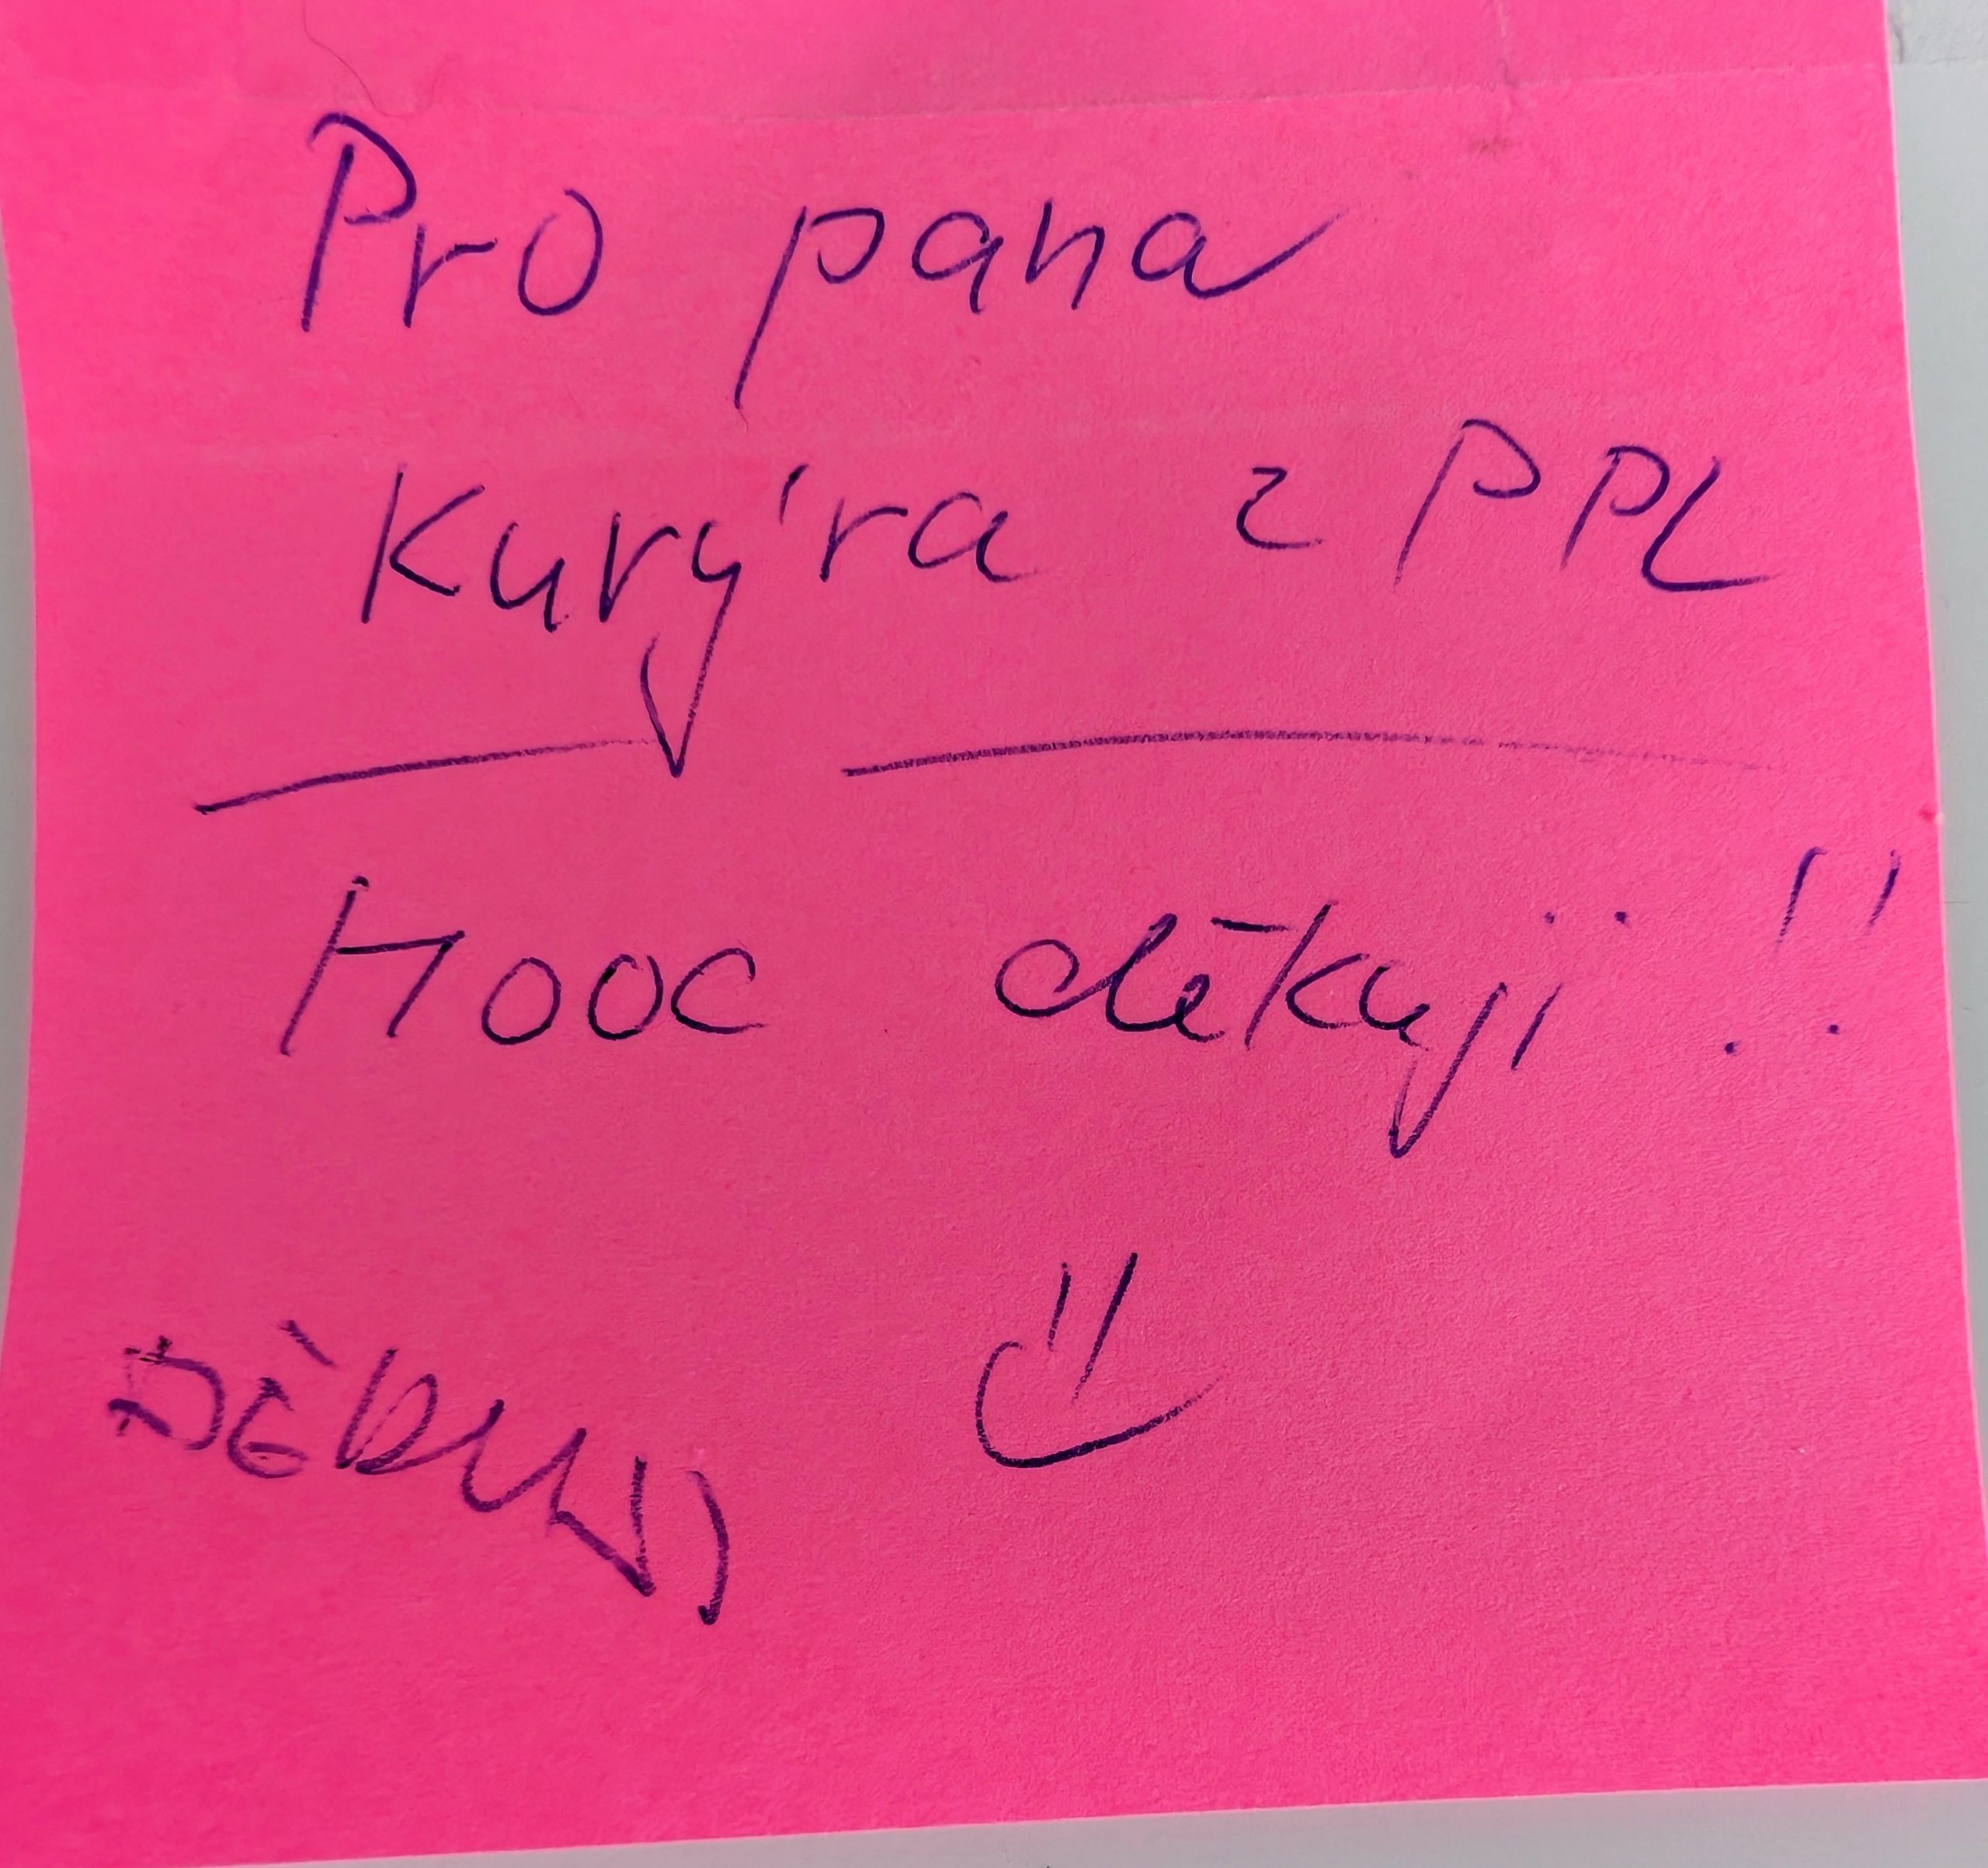 Pro pana
Kurýra z PPL
Mooc děkuji!!
Děkuji